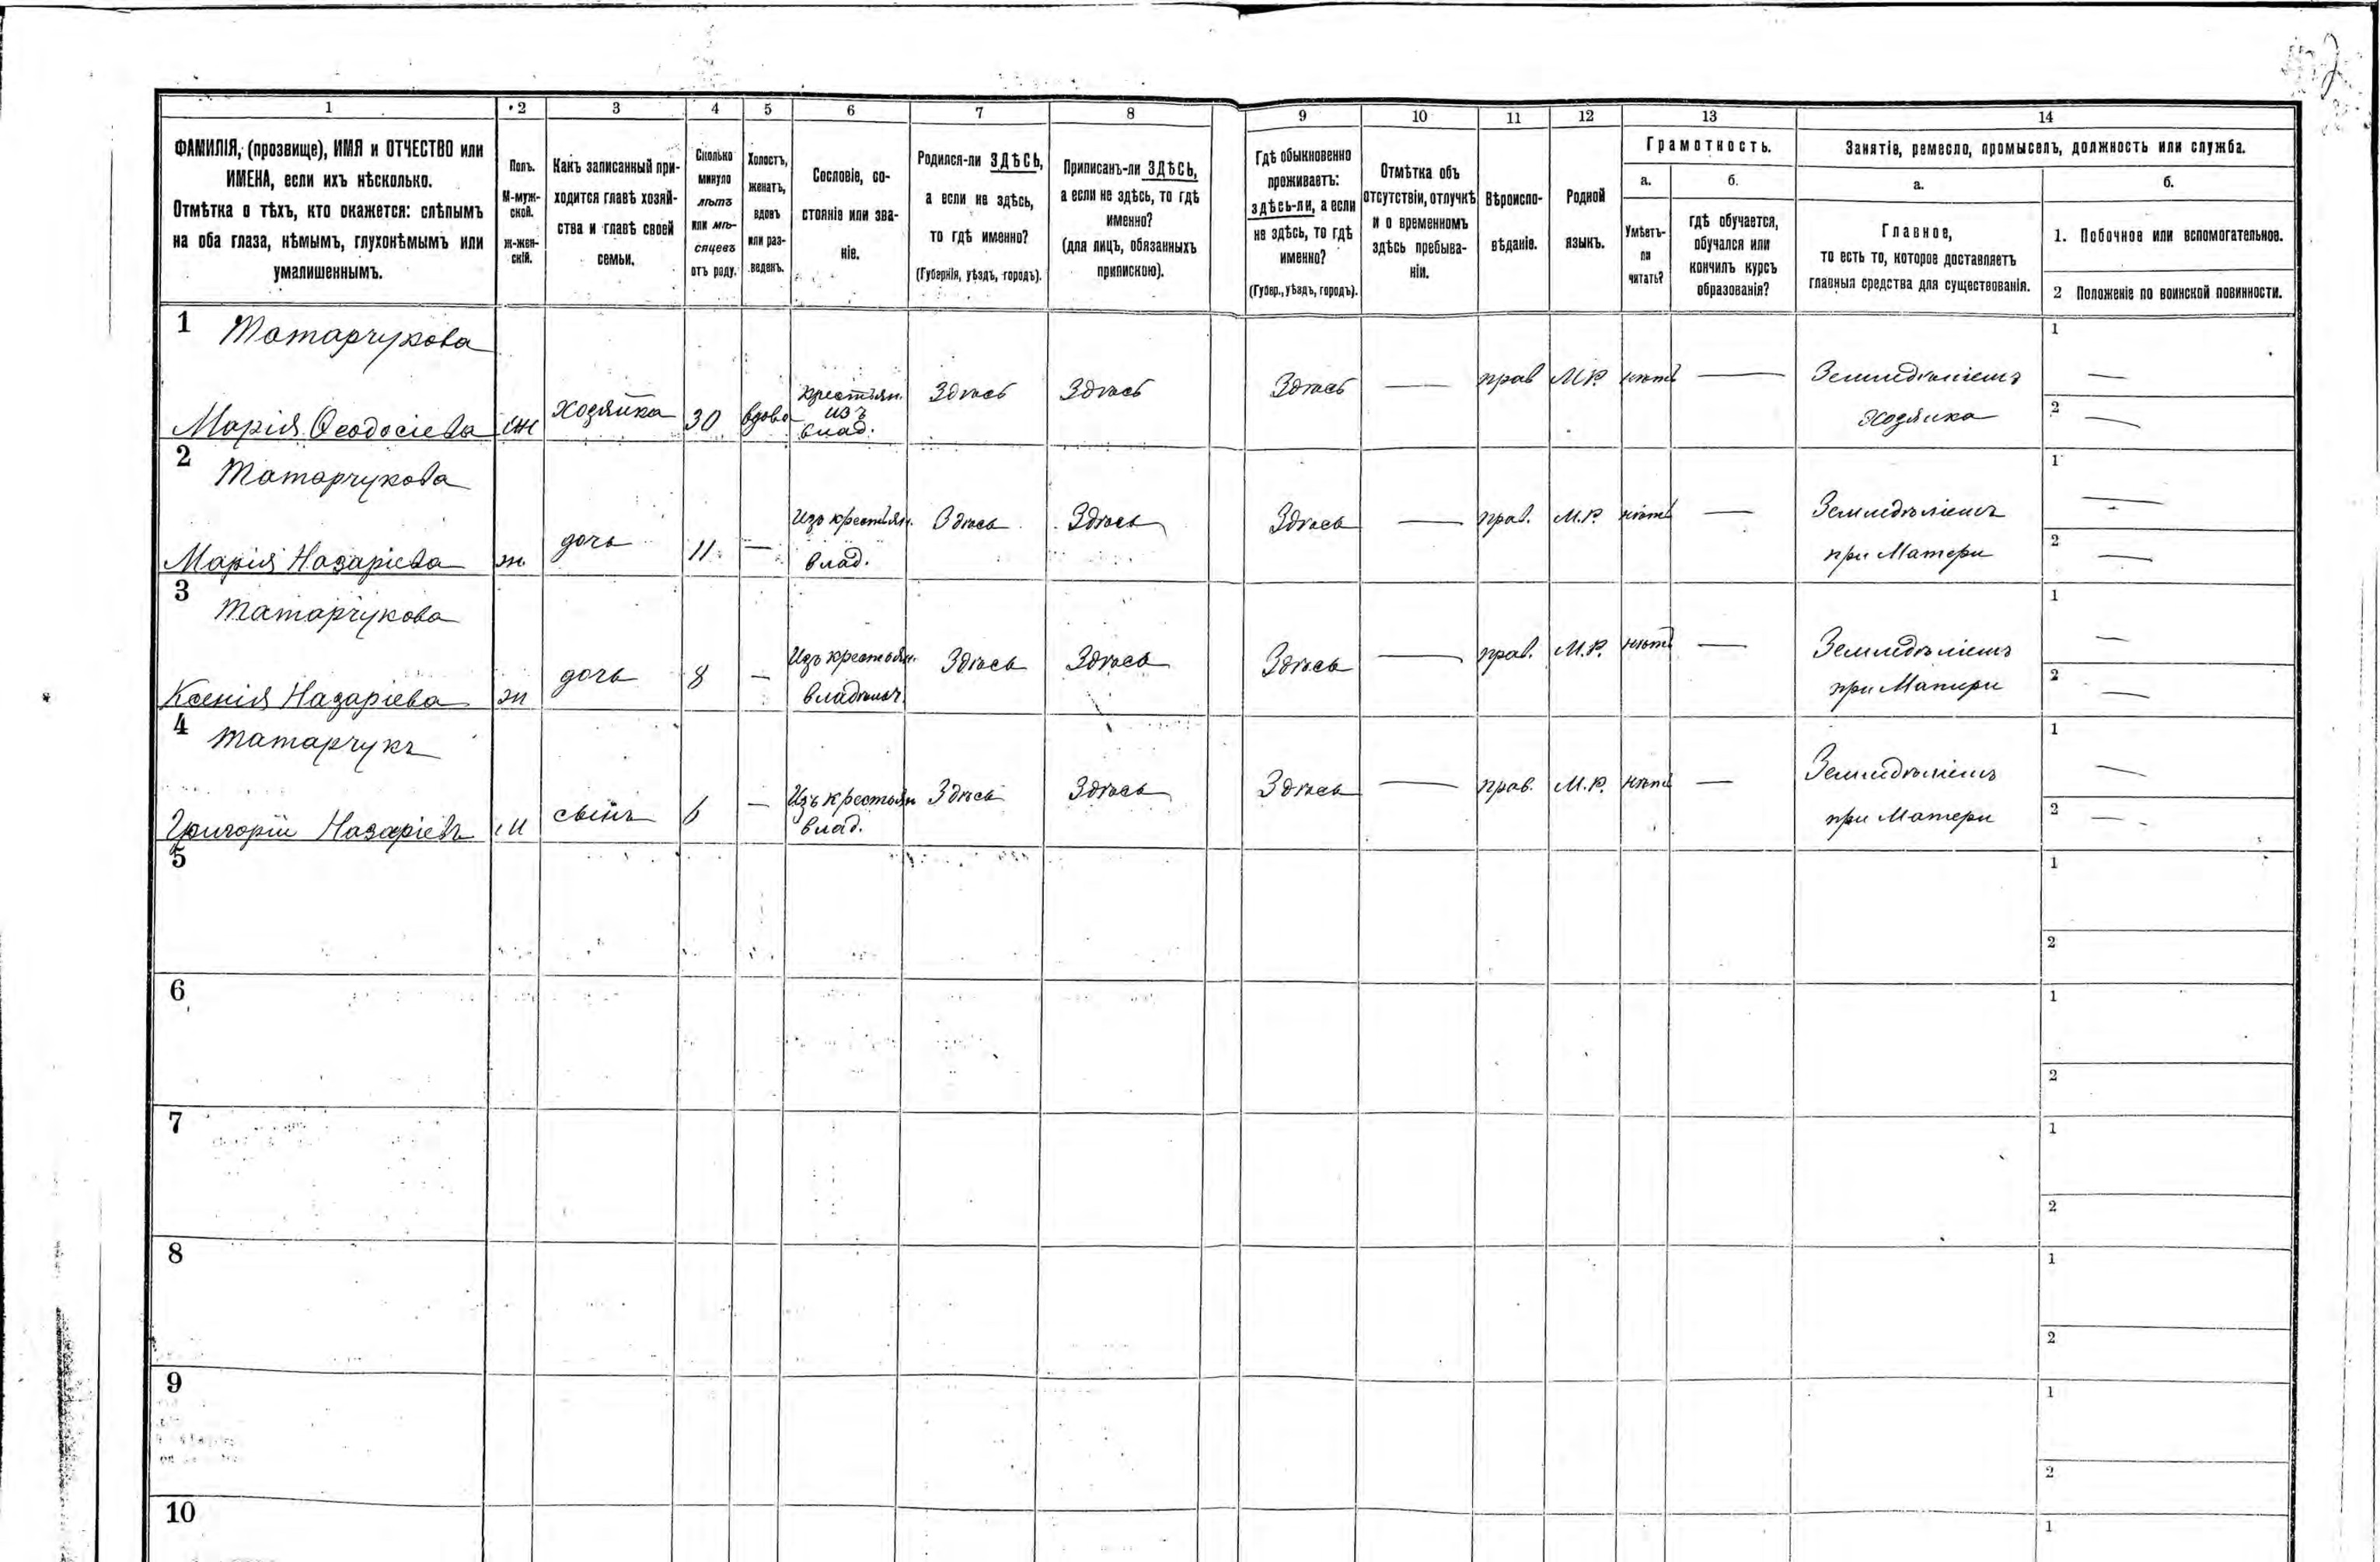 1 2 3 4 5 6 7 8 9 10 11 12 13 14
ФАМИЛІЯ, (прозвище), ИМЯ и ОТЧЕСТВО или
ИМЕНА, если ихъ нѣсколько.
Отмѣтка о тѣхъ, кто окажется: слѣпымъ
на оба глаза, нѣмымъ, глухонѣмымъ или
умалишеннымъ.
Полъ.
М-муж-
ской.
ж-жен-
скій.
Какъ записанный при-
ходится главѣ хозяй-
ства и главѣ своей
семьи.
Сколько
минуло
лѣтъ
или мѣ-
сяцевъ
отъ роду.
Холостъ,
женатъ,
вдовъ
или раз-
веденъ.
Сословіе, со-
стояніе или зва-
ніе.
Родился-ли ЗДѢСЬ,
а если не здѣсь,
то гдѣ именно?
(Губернія, уѣздъ, городъ).
Приписанъ-ли ЗДѢСЬ,
а если не здѣсь, то гдѣ
именно?
(для лицъ, обязанныхъ
припискою).
Гдѣ обыкновенно
проживаетъ:
здѣсь-ли, а если
не здѣсь, то гдѣ
именно?
(Губер., уѣздъ, городъ).
Отмѣтка объ
отсутствіи, отлучкѣ
и о временномъ
здѣсь пребыва-
ніи.
Вѣроиспо-
вѣданіе.
Родной
языкъ.
Грамотность.
а.
Умѣетъ-
ли
читать?
б.
гдѣ обучается,
обучался или
кончилъ курсъ
образованія?
Занятіе, ремесло, промыселъ, должность или служба.
а.
Главное,
то есть то, которое доставляетъ
главныя средства для существованія.
б.
1. Побочное или вспомогательное.
2 Положеніе по воинской повинности.
1 Татарчукова
Марія Ѳеодосіева
ж
хозяйка
30
вдова
крестьян.
изъ
влад.
Здѣсь
Здѣсь
Здѣсь
—
прав
М.Р.
нѣтъ
—
Земледѣліемъ
хозяйка
1 —
2 —
2 Татарчукова
Марія Назаріева
ж.
дочь
11
—
Изъ крестьян.
влад.
Здѣсь
Здѣсь
Здѣсь
—
прав.
М.Р.
нѣтъ
—
Земледѣліемъ
при Матери
1 —
2 —
3 Татарчукова
Ксенія Назаріева
ж
дочь
8
—
Изъ крестьян.
владѣльч.
Здѣсь
Здѣсь
Здѣсь
—
прав.
М.Р.
нѣтъ
—
Земледѣліемъ
при Матери
1 —
2 —
4 Татарчукъ
Григорій Назаріевъ
м
сынъ
6
—
Изъ крестьян
влад.
Здѣсь
Здѣсь
Здѣсь
—
прав.
М.Р.
нѣтъ
—
Земледѣліемъ
при Матери
1 —
2 —
5
1
2
6
1
2
7
1
2
8
1
2
9
1
2
10
1